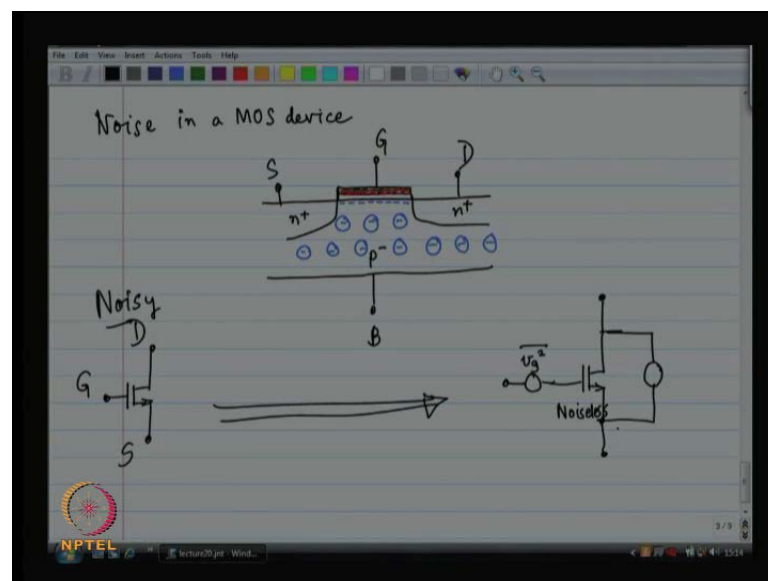 File Edit View Insert Actions Tools Help
B I
Noise in a MOS device
G
S D
n+ n+
p-
B
Noisy
D
G
S
v_g^2
Noiseless
NPTEL
lecture20.jnt - Wind...
3/3
15:14